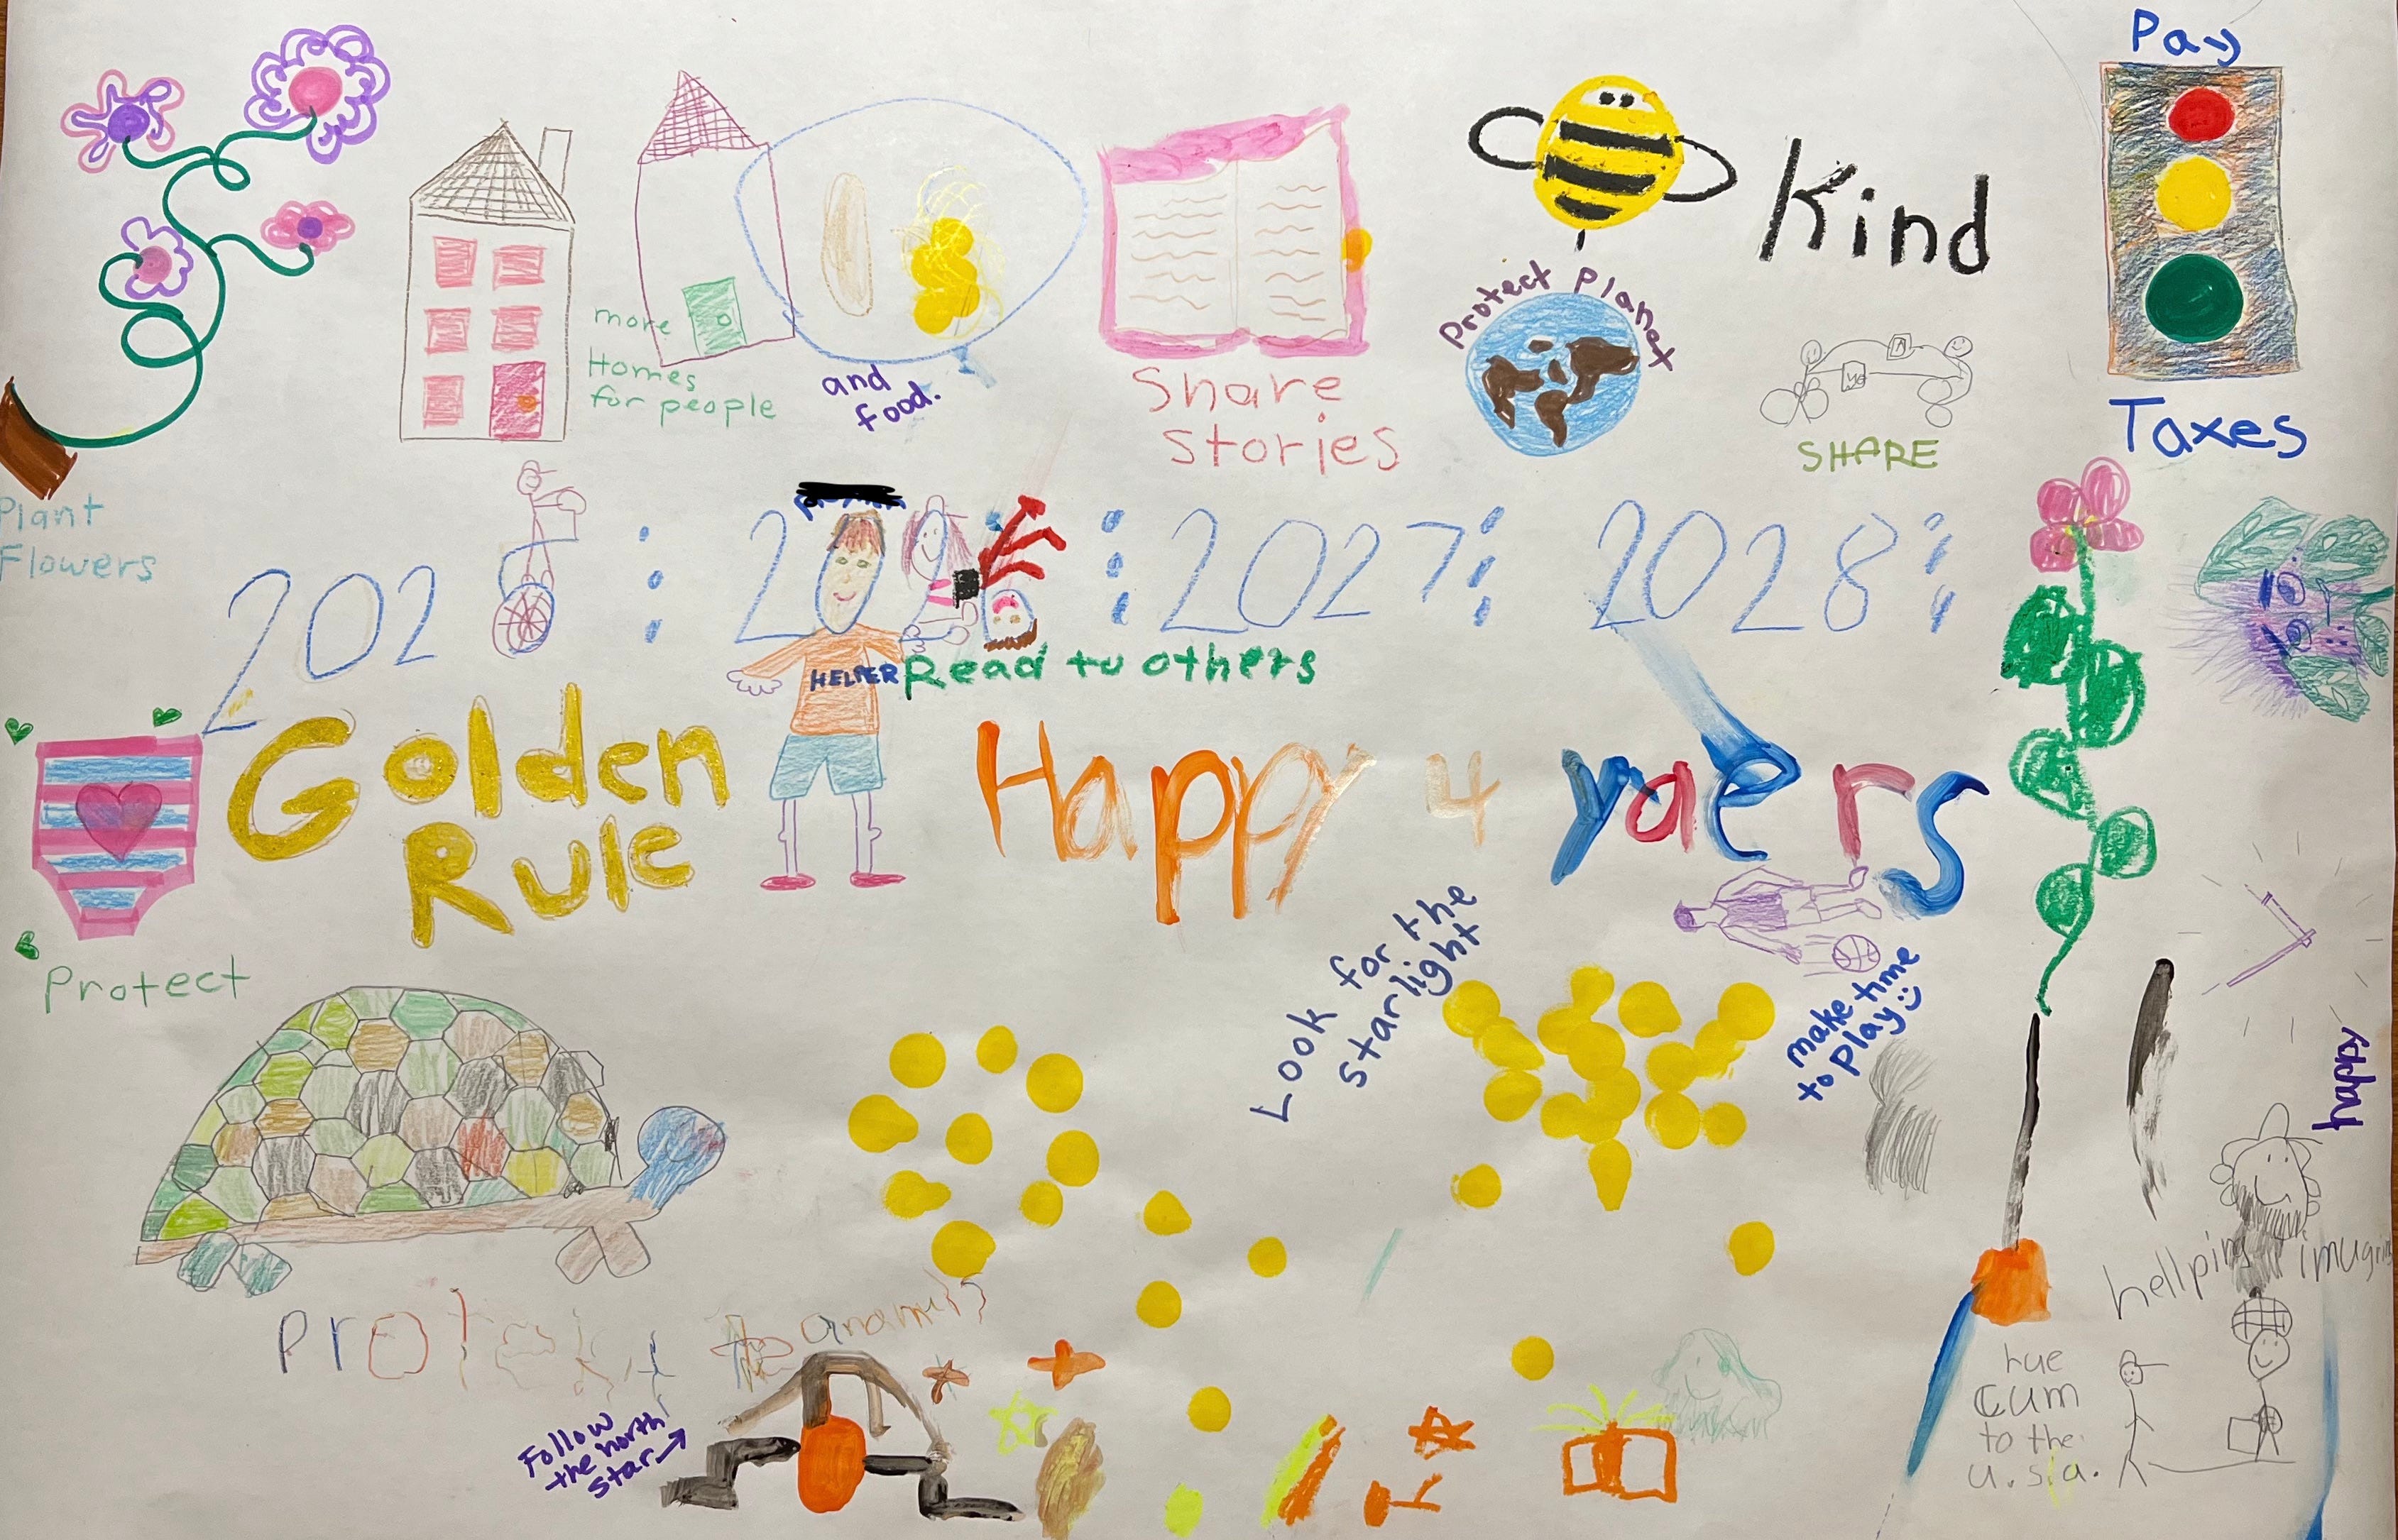 Pay
Kind
Protect Planet
more
Homes
for people
and
food.
Share
Stories
SHARE
Taxes
Plant
Flowers
202
:
20
:
2027
:
2028
:
HELPER
Read to others
Golden
Rule
Happy 4 yaers
Protect
Look for the
starlight
make time
to play
happy
hellping
Protekt the
Follow
the north
star
cum
to the
u.s.a.